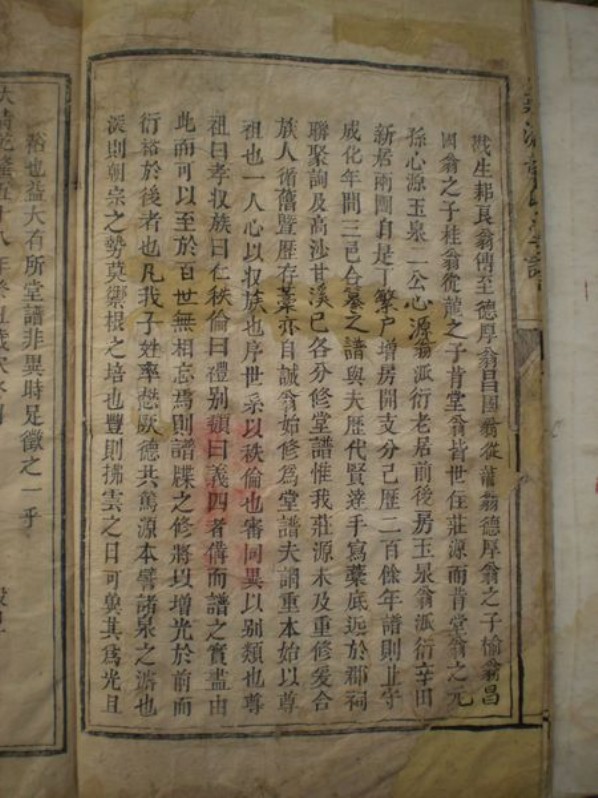 戩生邦良翁傳至德厚翁昌國翁從蕭翁德厚翁之子愉翁昌
國翁之子桂翁從龍之子肯堂翁皆世住莊源而肯堂翁之元
孫心源玉泉二公心源翁派衍老居前後房玉泉翁派衍辛田
新居兩團自是丁繁户增房開支分已歷二百餘年譜則止守
成化年間三邑合纂之譜與夫歷代賢達手寫藁底迄於郡祠
聯聚詢及高沙甘溪已各分修堂譜惟我莊源未及重修爰合
族人循舊暨歷存藁亦自誠翁始修爲堂譜夫譜重本始以尊
祖也一人心以収族也序世系以秩倫也審同異以别類也尊
祖曰孝収族曰仁秩倫曰禮别類曰義四者備而譜之實盡由
此而可以至於百世無相忘焉則譜牒之修將以增光於前而
衍裕於後者也凡我子姓率懋厥德共篤源本譬諸泉之濬也
派則朝宗之勢莫禦根之培也豐則拂雲之日可兾其爲光且
裕也益大有所堂譜非異時足徵之一乎
大清乾隆五十八年癸丑歲次